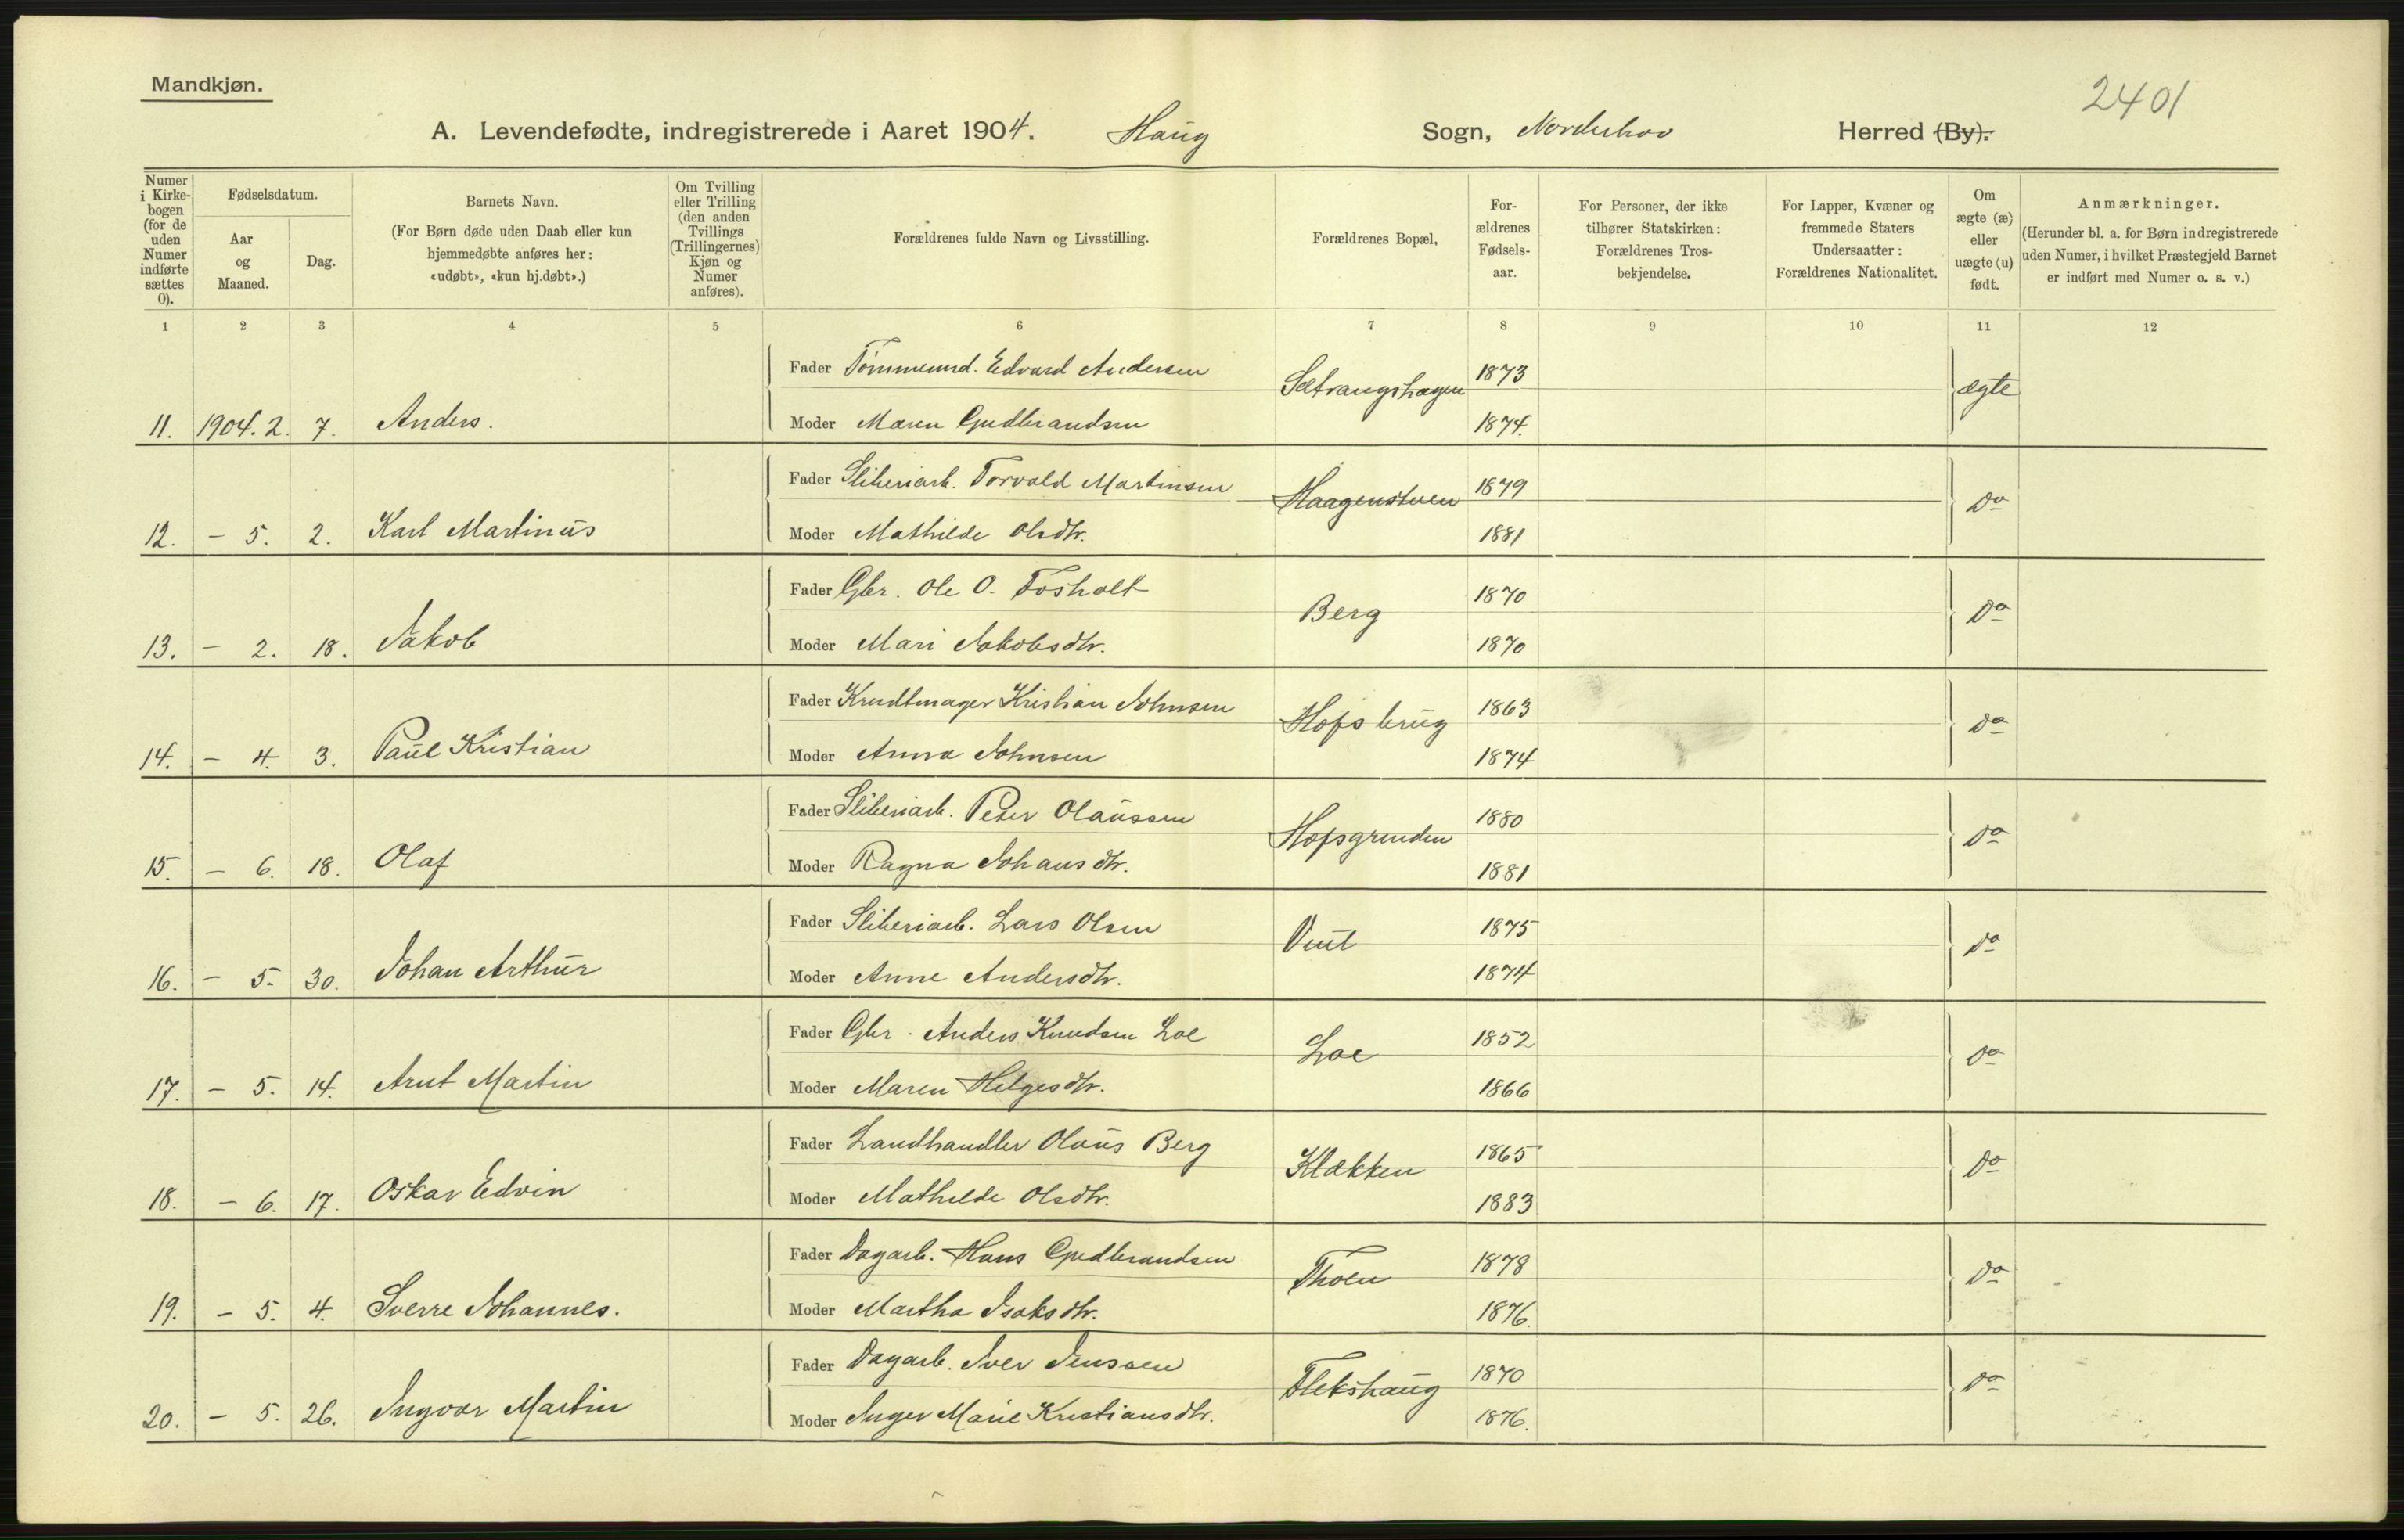 Mandkjøn.
2401
A. Levendefødte, indregistrerede i Aaret 1904. Haug Sogn, Norderhov Herred (By).
Numer i Kirkebogen (for de uden Numer indførte sættes 0).
Fødselsdatum.
Aar og Maaned.
Dag.
Barnets Navn.
(For Børn døde uden Daab eller kun hjemmedøbte anføres her: «udøbt», «kun hj.døbt».)
Om Tvilling eller Trilling (den anden Tvillings (Trillingernes) Kjøn og Numer anføres).
Forældrenes fulde Navn og Livsstilling.
Forældrenes Bopæl,
Forældrenes Fødselsaar.
For Personer, der ikke tilhører Statskirken: Forældrenes Trosbekjendelse.
For Lapper, Kvæner og fremmede Staters Undersaatter: Forældrenes Nationalitet.
Om ægte (æ) eller uægte (u) født.
Anmærkninger.
(Herunder bl. a. for Børn indregistrerede uden Numer, i hvilket Præstegjeld Barnet er indført med Numer o. s. v.)
1 2 3 4 5 6 7 8 9 10 11 12
Fader Tømmermd. Edvard Andersen Sætrangshagen 1873 ægte
11. 1904. 2. 7. Anders. Moder Maren Gudbrandsen 1874.
Fader Sliberiarb. Torvald Martinsen Haagenstuen 1879 do
12. - 5. 2. Karl Martinus Moder Mathilde Olsdtr. 1881
Fader Gbr. Ole O. Fosholt Berg 1870 do
13. - 2. 18. Jakob Moder Mari Jakobsdtr. 1870
Fader Krudtmager Kristian Johnsen Hofsbrug 1863 do
14. - 4. 3. Paul Kristian Moder Anna Johnsen 1874
Fader Sliberiarb. Peter Olaussen Hofsgrinden 1880 do
15. - 6. 18. Olaf Moder Ragna Johansdtr. 1881
Fader Sliberiarb. Lars Olsen 1875 do
16. - 5. 30. Johan Arthur Moder Anne Andersdtr. 1874
Fader Gbr. Anders Knudsen Loe Loe 1852 do
17. - 5. 14. Arnt Martin Moder Maren Helgesdtr. 1866
Fader Landhandler Olaus Berg Klækken 1865 do
18. - 6. 17. Oskar Edvin Moder Mathilde Olsdtr. 1883
Fader Dagarb. Hans Gudbrandsen Thoen 1878 do
19. - 5. 4. Sverre Johannes. Moder Martha Isaksdtr. 1876.
Fader Dagarb. Iver Jenssen Flekshaug 1870 do
20. - 5. 26. Ingvar Martin Moder Inger Marie Kristiansdtr. 1876.